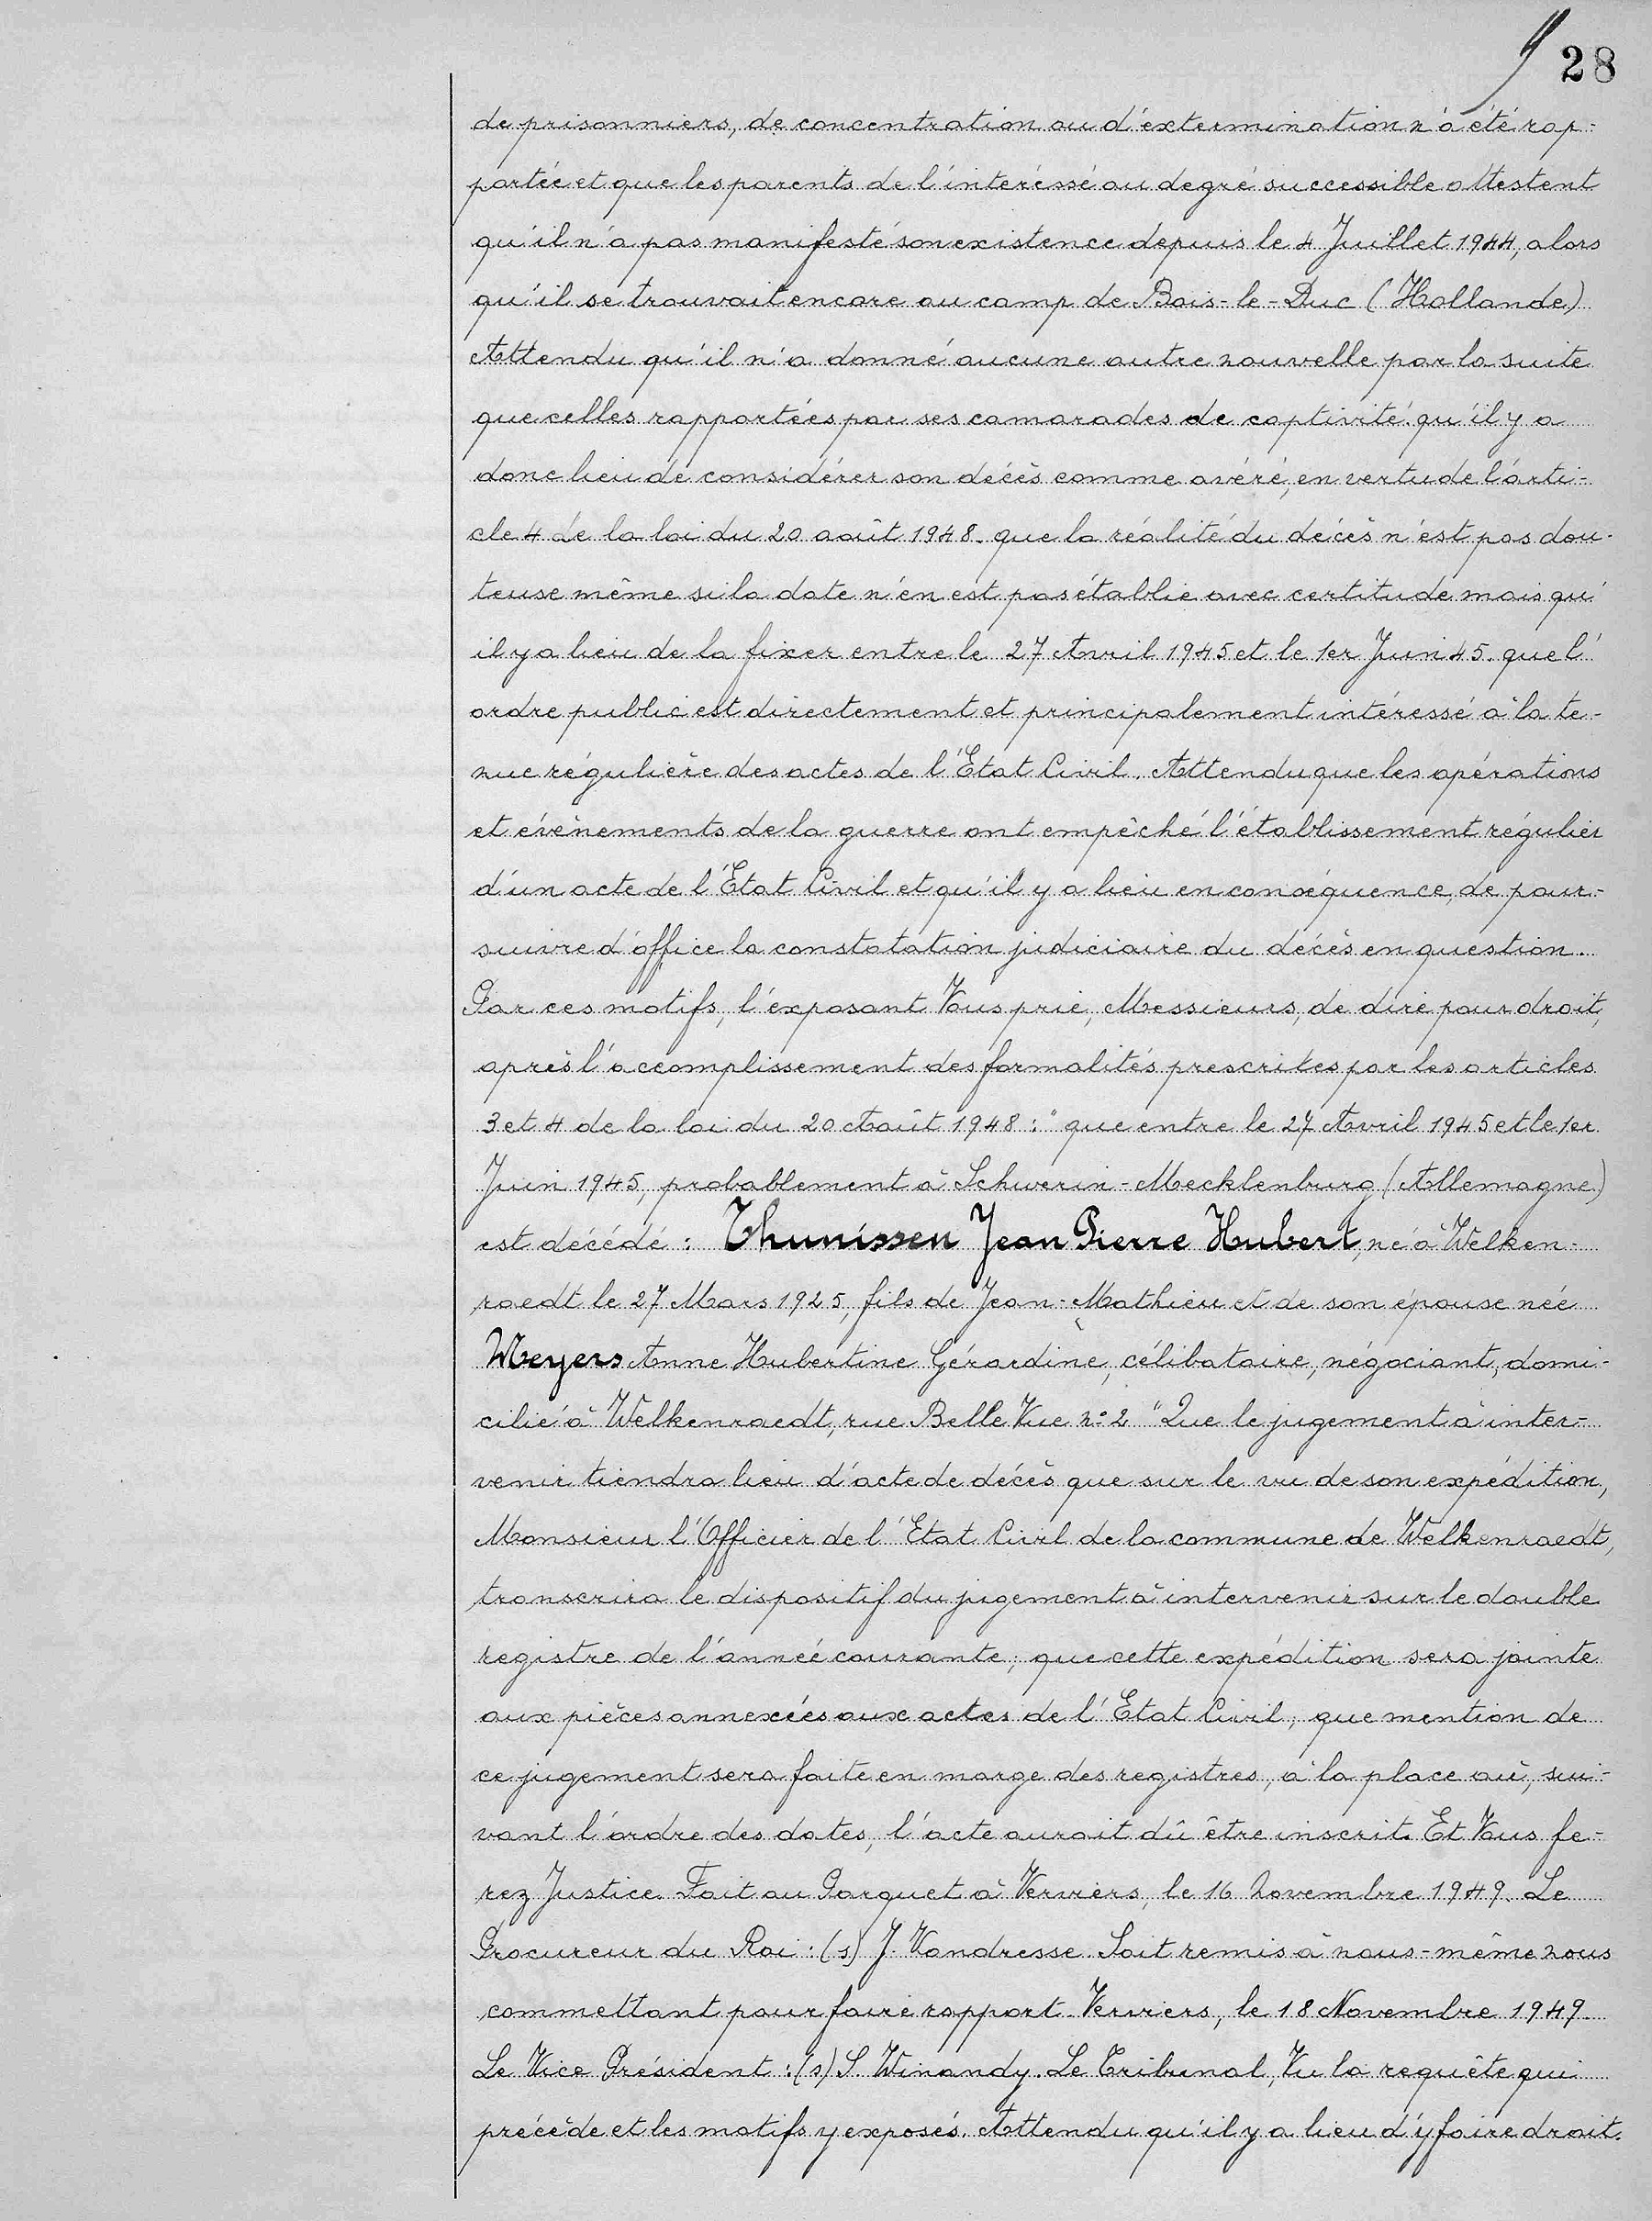 28
de prisonniers, de concentration ou d'extermination n'a été rap-
portée et que les parents de l'intéréssé au degré successible attestent
qu'il n'a pas manifesté son existence depuis le 4 Juillet 1944, alors
qu'il se trouvait encore au camp de Bois-le-Duc (Hollande)
Attendu qu'il n'a donné aucune autre nouvelle par la suite
que celles rapportées par ses camarades de captivité. qu'il y a
donc lieu de considérer son décès comme avéré, en vertu de l'arti-
cle 4 de la loi du 20 août 1948. que la réalité du décès n'est pas dou-
teuse même si la date n'en est pas établie avec certitude mais qu'
il y a lieu de la fixer entre le 27 Avril 1945 et le 1er Juin 45. que l'
ordre public est directement et principalement intéressé à la te-
nue régulière des actes de l'Etat Civil. Attendu que les opérations
et évènements de la guerre ont empêché l'établissement régulier
d'un acte de l'Etat Civil et qu'il y a lieu en conséquence, de pour-
suivre d'office la constatation judiciaire du décès en question.
Par ces motifs, l'exposant Vous prie, Messieurs, de dire pour droit,
après l'accomplissement des formalités prescrites par les articles
3 et 4 de la loi du 20 Août 1948 : " que entre le 27 Avril 1945 et le 1er
Juin 1945, probablement à Schwerin-Mecklenburg (Allemagne)
est décédé : Thunissen Jean Pierre Hubert, né à Welken-
raedt le 27 Mars 1925, fils de Jean-Mathieu et de son épouse née
Meyers Anne Hubertine Gérardine, célibataire, négociant, domi-
cilié à Welkenraedt, rue Belle Vue n° 2 " Que le jugement à inter-
venir tiendra lieu d'acte de décès que sur le vu de son expédition,
Monsieur l'Officier de l'Etat Civil de la commune de Welkenraedt,
transcrira le dispositif du jugement à intervenir sur le double
registre de l'année courante ; que cette expédition sera jointe
aux pièces annexées aux actes de l'Etat Civil ; que mention de
ce jugement sera faite en marge des registres, à la place où, sui-
vant l'ordre des dates, l'acte aurait dû être inscrit. Et Vous fe-
rez Justice. Fait au Parquet à Verviers, le 16 Novembre 1949. Le
Procureur du Roi : (s) J. Vandresse. Soit remis à nous-même nous
commettant pour faire rapport. Verviers, le 18 Novembre 1949.
Le Vice Président : (s) S. Winandy. Le Tribunal, Vu la requête qui
précède et les motifs y exposés. Attendu qu'il y a lieu d'y faire droit.